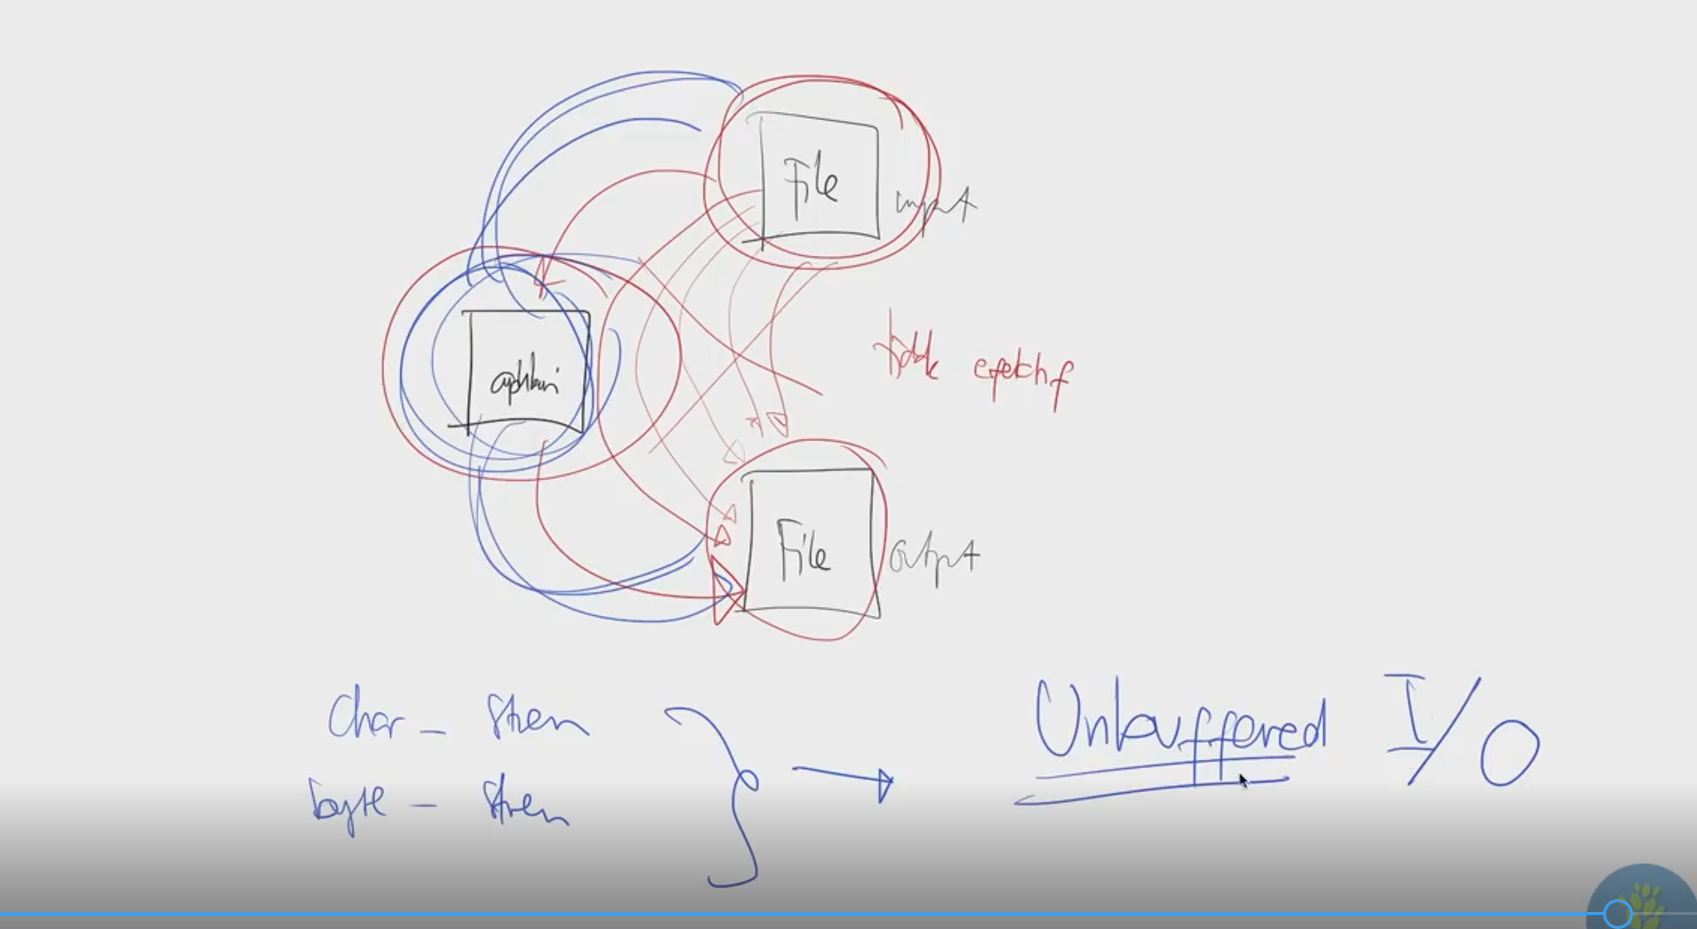 File
input
aplikasi
tidak efektif
File
output
char - strem
byte - strem
Unbuffered I/O